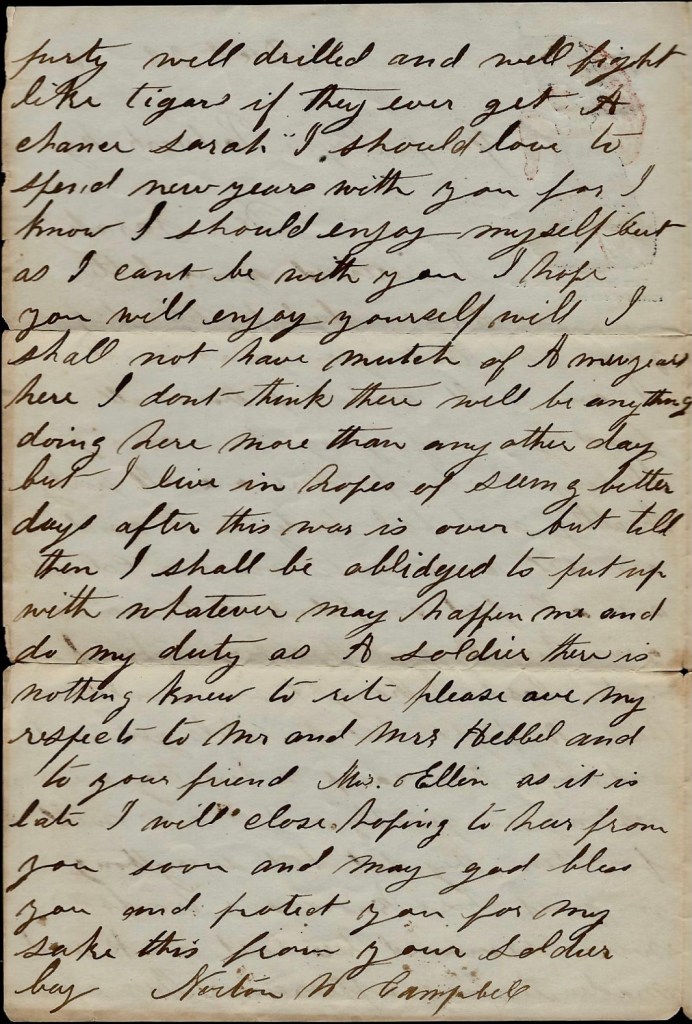 purty well drilled and will fight
like tigars if they ever get A
chance Sarah I should love to
spend newyears with you for I
know I should enjoy myself but
as I cant be with you I hope
you will enjoy yourself will I
shall not have mutch of A newyears
here I dont think there will be anything
doing here more than any other day
but I live in hopes of seeing better
days after this war is over but till
then I shall be oblidged to put up
with whatever may happen me and
do my duty as A soldier there is
nothing knew to rite please ave my
respects to Mr and Mrs Hebbel and
to your friend Ellin as it is
late I will close hoping to hear from
you soon and may god bless
you and protect you for my
sake this from your soldier
boy Norton W Campbell